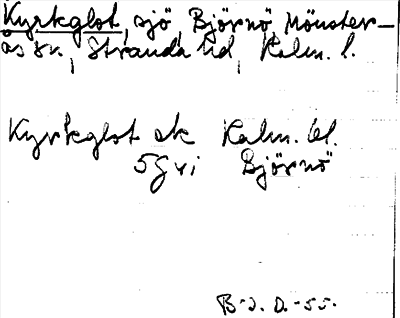 Kyrkglot, sjö, Björnö, Mönster-
ås sn, Stranda hd, Kalm. l.
Kyrkglot ek Kalm. bl.
5G vi Björnö
B-J. D. -55.